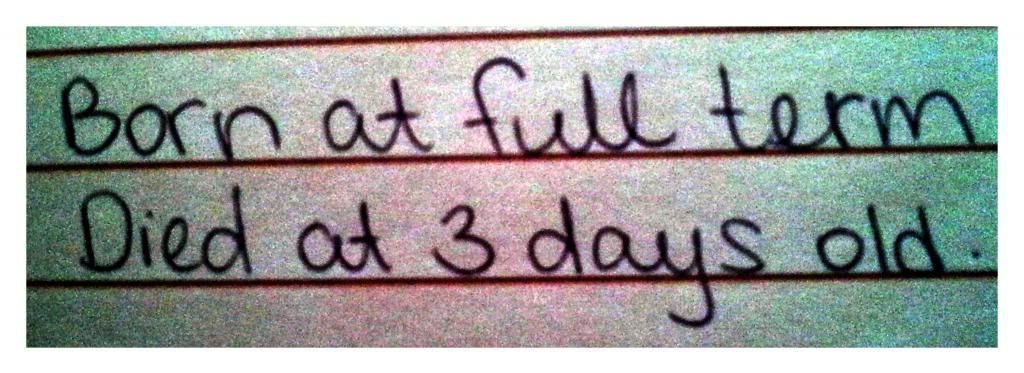 Born at full term
Died at 3 days old.